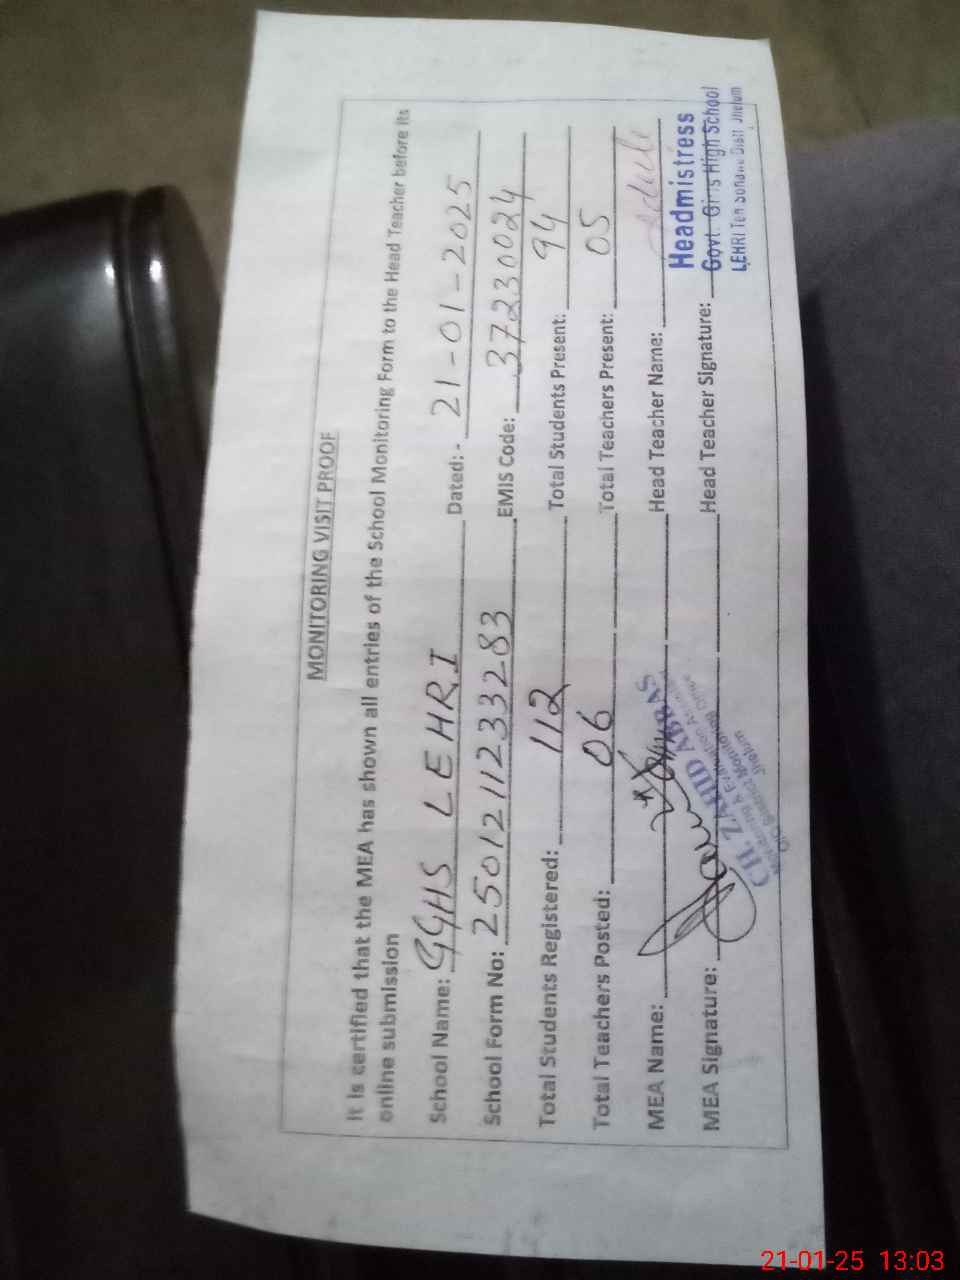 MONITORING VISIT PROOF
It is certified that the MEA has shown all entries of the School Monitoring Form to the Head Teacher before its
online submission
School Name: GGHS LEHRI Dated: - 21-01-2025
School Form No: 2501211233283 EMIS Code: 37230024
Total Students Registered: 112 Total Students Present: 94
Total Teachers Posted: 06 Total Teachers Present: 05
MEA Name: Head Teacher Name:
MEA Signature: Head Teacher Signature:
CH. ZAHID ABBAS
Monitoring & Evaluation Assistant
O/O District Monitoring Officer
Jhelum
Headmistress
Govt. Girls High School
LEHRI Teh Sohawa Distt Jhelum
21-01-25 13:03